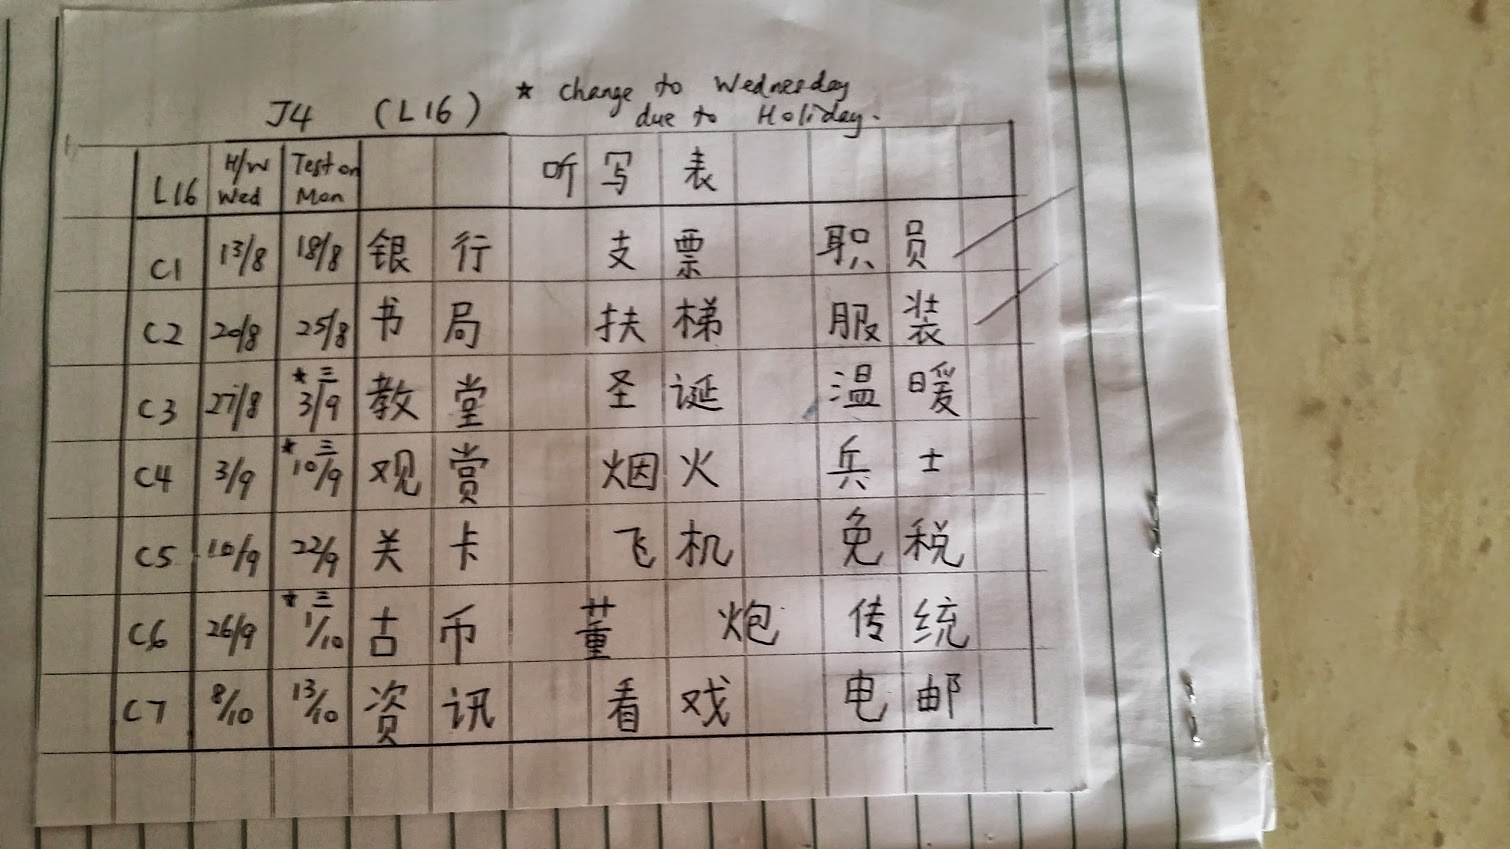 J4 (L16) * change to Wednesday
due to Holiday.
L16 H/W Wed Test on Mon 听写表
C1 13/8 18/8 银行 支票 职员
C2 20/8 25/8 书局 扶梯 服装
C3 27/8 * 三 3/9 教堂 圣诞 温暖
C4 3/9 * 三 10/9 观赏 烟火 兵士
C5 10/9 22/9 关卡 飞机 免税
C6 26/9 * 三 1/10 古币 董 炮 传统
C7 8/10 13/10 资讯 看戏 电邮